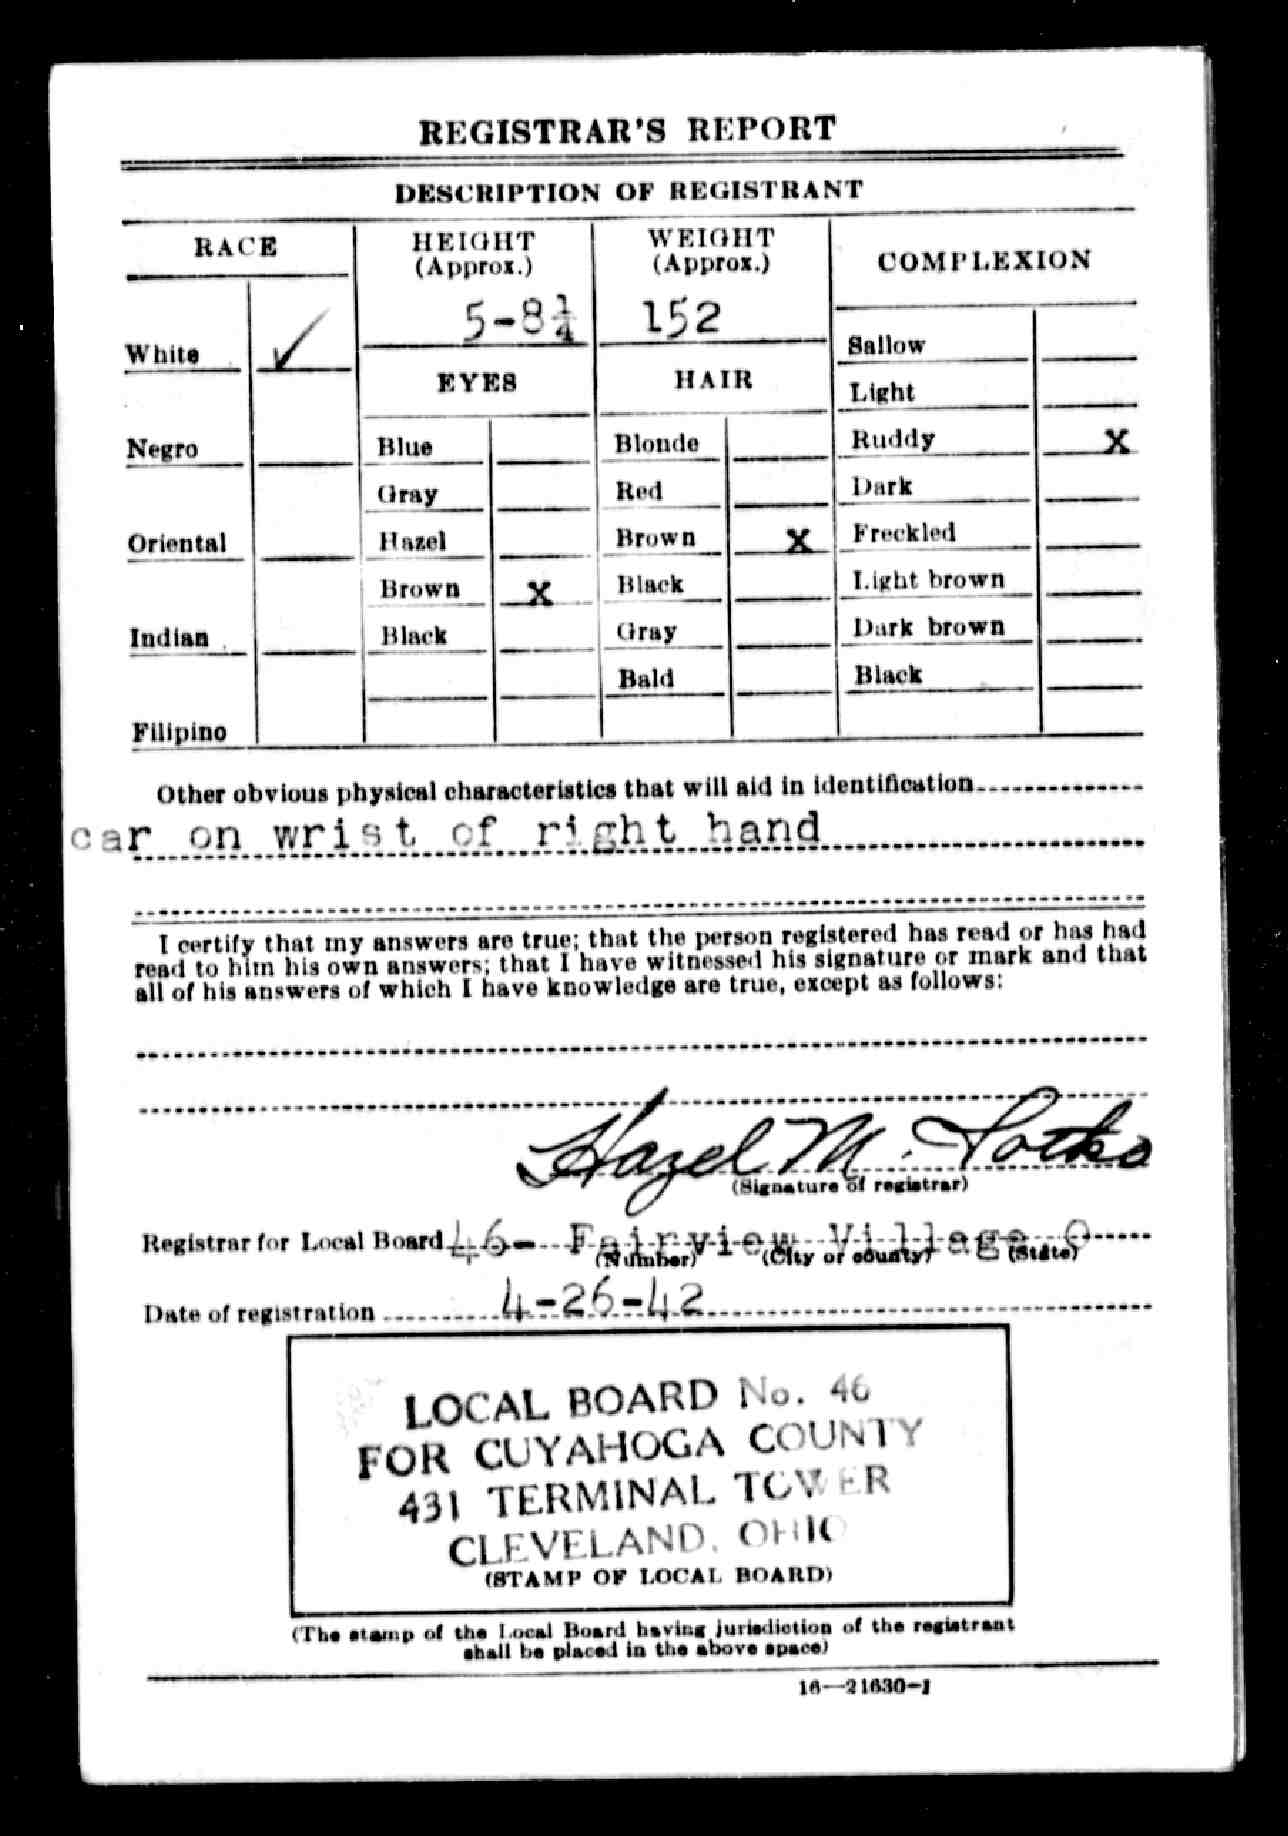 REGISTRAR'S REPORT
DESCRIPTION OF REGISTRANT
RACE
HEIGHT
(Approx.)
WEIGHT
(Approx.)
COMPLEXION
5-8¼
152
White ✓
EYES
HAIR
Sallow
Light
Negro
Blue
Blonde
Ruddy X
Gray
Red
Dark
Oriental
Hazel
Brown X
Freckled
Brown X
Black
Light brown
Indian
Black
Gray
Dark brown
Bald
Black
Filipino
Other obvious physical characteristics that will aid in identification
car on wrist of right hand
I certify that my answers are true; that the person registered has read or has had
read to him his own answers; that I have witnessed his signature or mark and that
all of his answers of which I have knowledge are true, except as follows:
Hazel M.
(Signature of registrar)
Registrar for Local Board 46- Fairview Village O
(Number) (City or county) (State)
Date of registration 4-26-42
LOCAL BOARD No. 46
FOR CUYAHOGA COUNTY
431 TERMINAL TOWER
CLEVELAND, OHIO
(STAMP OF LOCAL BOARD)
(The stamp of the Local Board having jurisdiction of the registrant
shall be placed in the above space)
16—21630-1